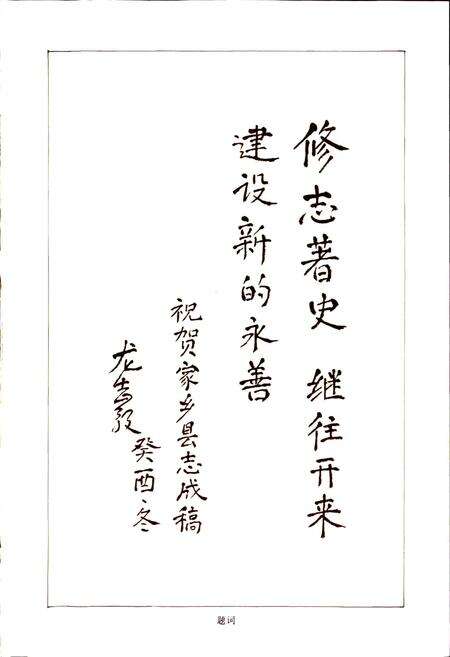 修志著史 继往开来
建设新的永善
祝贺家乡县志成稿
龙 癸酉·冬
题词